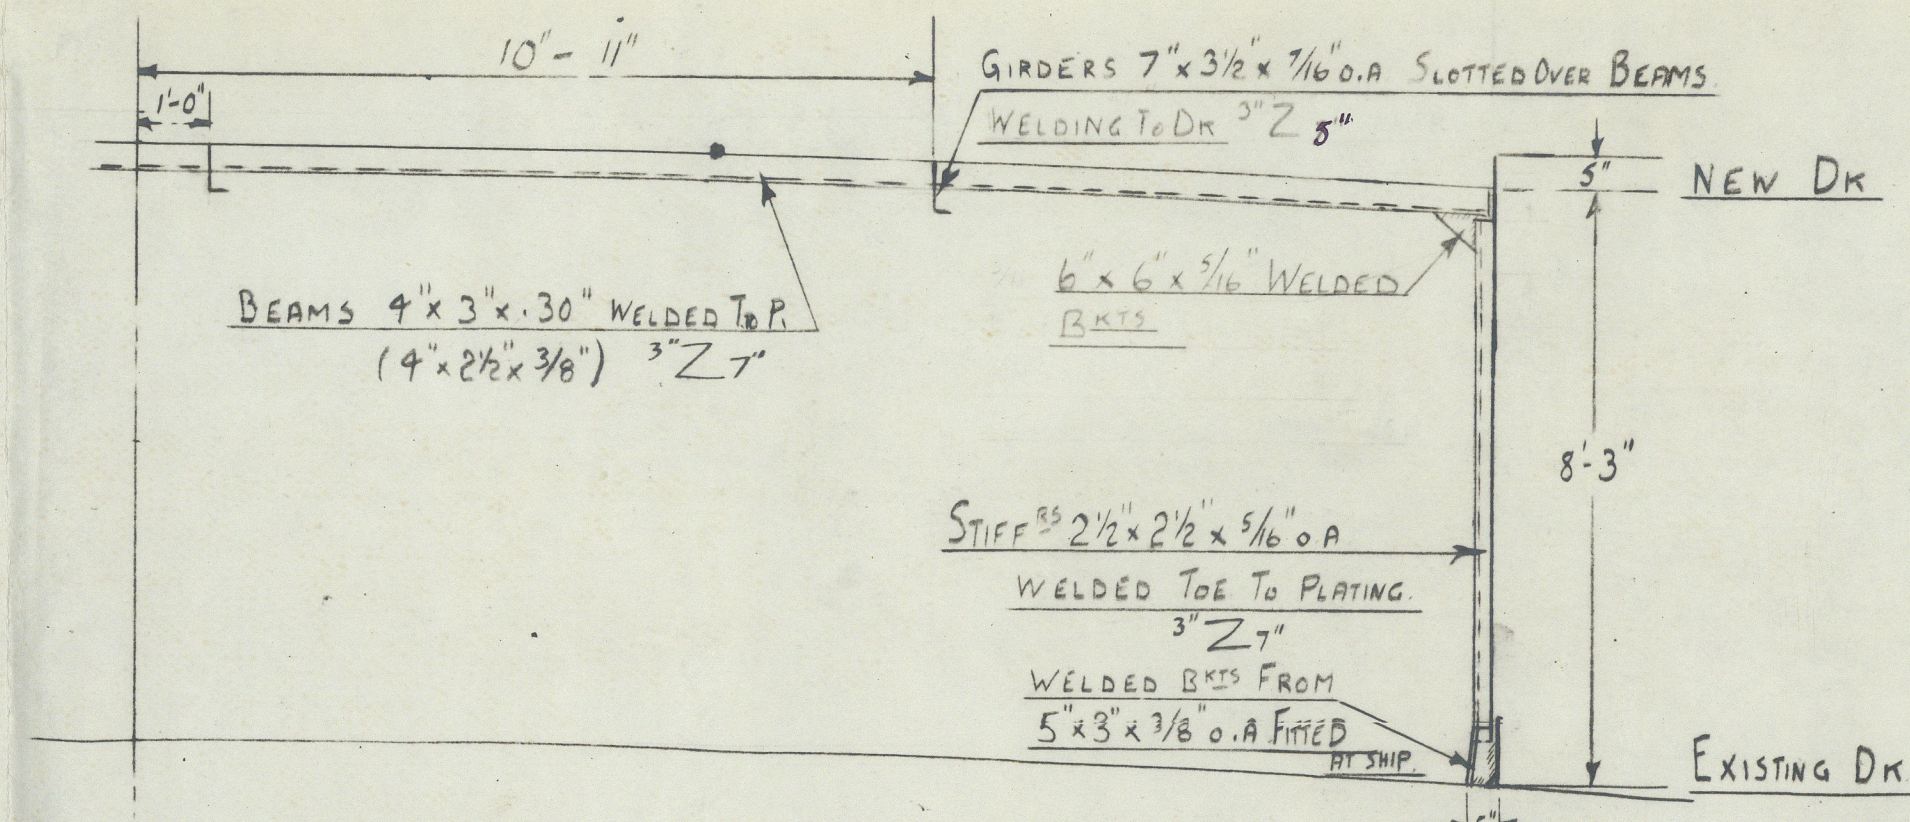 10" - 11"
1'-0"
GIRDERS 7" x 3½ x 7/16" O.A SLOTTED OVER BEAMS.
WELDING TO DK 3" Z 5"
5"
NEW DK
6" x 6" x 5/16" WELDED
BKTS
BEAMS 4" x 3" x .30" WELDED TO P.
(4" x 2½" x 3/8") 3" Z 7"
8'-3"
STIFFRS 2½" x 2½" x 5/16" O A
WELDED TOE TO PLATING.
3" Z 7"
WELDED BKTS FROM
5" x 3" x 3/8" O.A FITTED
AT SHIP.
EXISTING DK